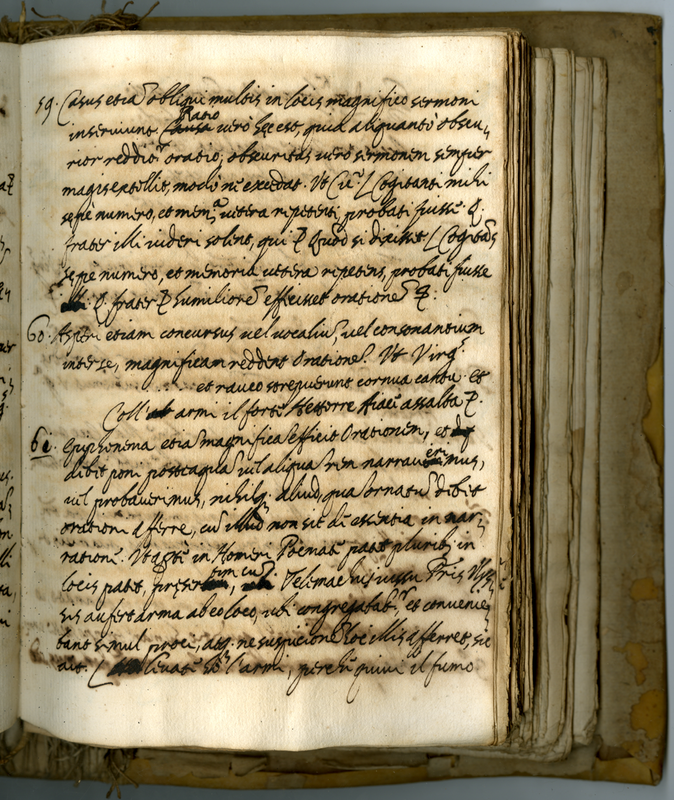 59. Casus etiã obliqui multis in locis magnifico sermoni
inserviunt. Ratio Causa verò hec est, quia aliquantò obscu-
rior redditr oratio, obscuritas verò sermonem semper
magis extollit, modò nè excedat. Vt Cic. [Cogitanti mihi
sepe numero, et memª vetera repetenti, probati fuisse Q.
frater illi videri solent, qui Quod si dixisset [Cogitãs
sepe numero, et memoria vetera repetens, probati fuisse
Q. frater humiliorẽ effecisset orationẽ
60. Asperi etiam concursus vel vocaliũ, vel consonantium
inter se, magnificam reddent Orationẽ. Vt Virg.
et rauco strepuerunt cornua cantu. et
Coll' armi il forte Hettorre Aiace assalta
61. Epiphonema etiã magnificã efficit Orationem, et
debet poni posteaquã vel aliquã rem narraverimus,
vel probaverimus, nihilq. aliud, quã ornatũ debet
orationi afferre, cũ illud non sit de essentia in nar-
rationẽ. Vt in Homeri Poemate patet pluribus in
locis patet, presertim cũ Telemachus iussu Pris Vlys-
sis aufert arma ab eo loco, ubi congregabantr, et convenie-
bant simul proci, atq. ne suspicionẽ illis afferret, sic
ait. [levate hò l'armi, perche quivi il fumo